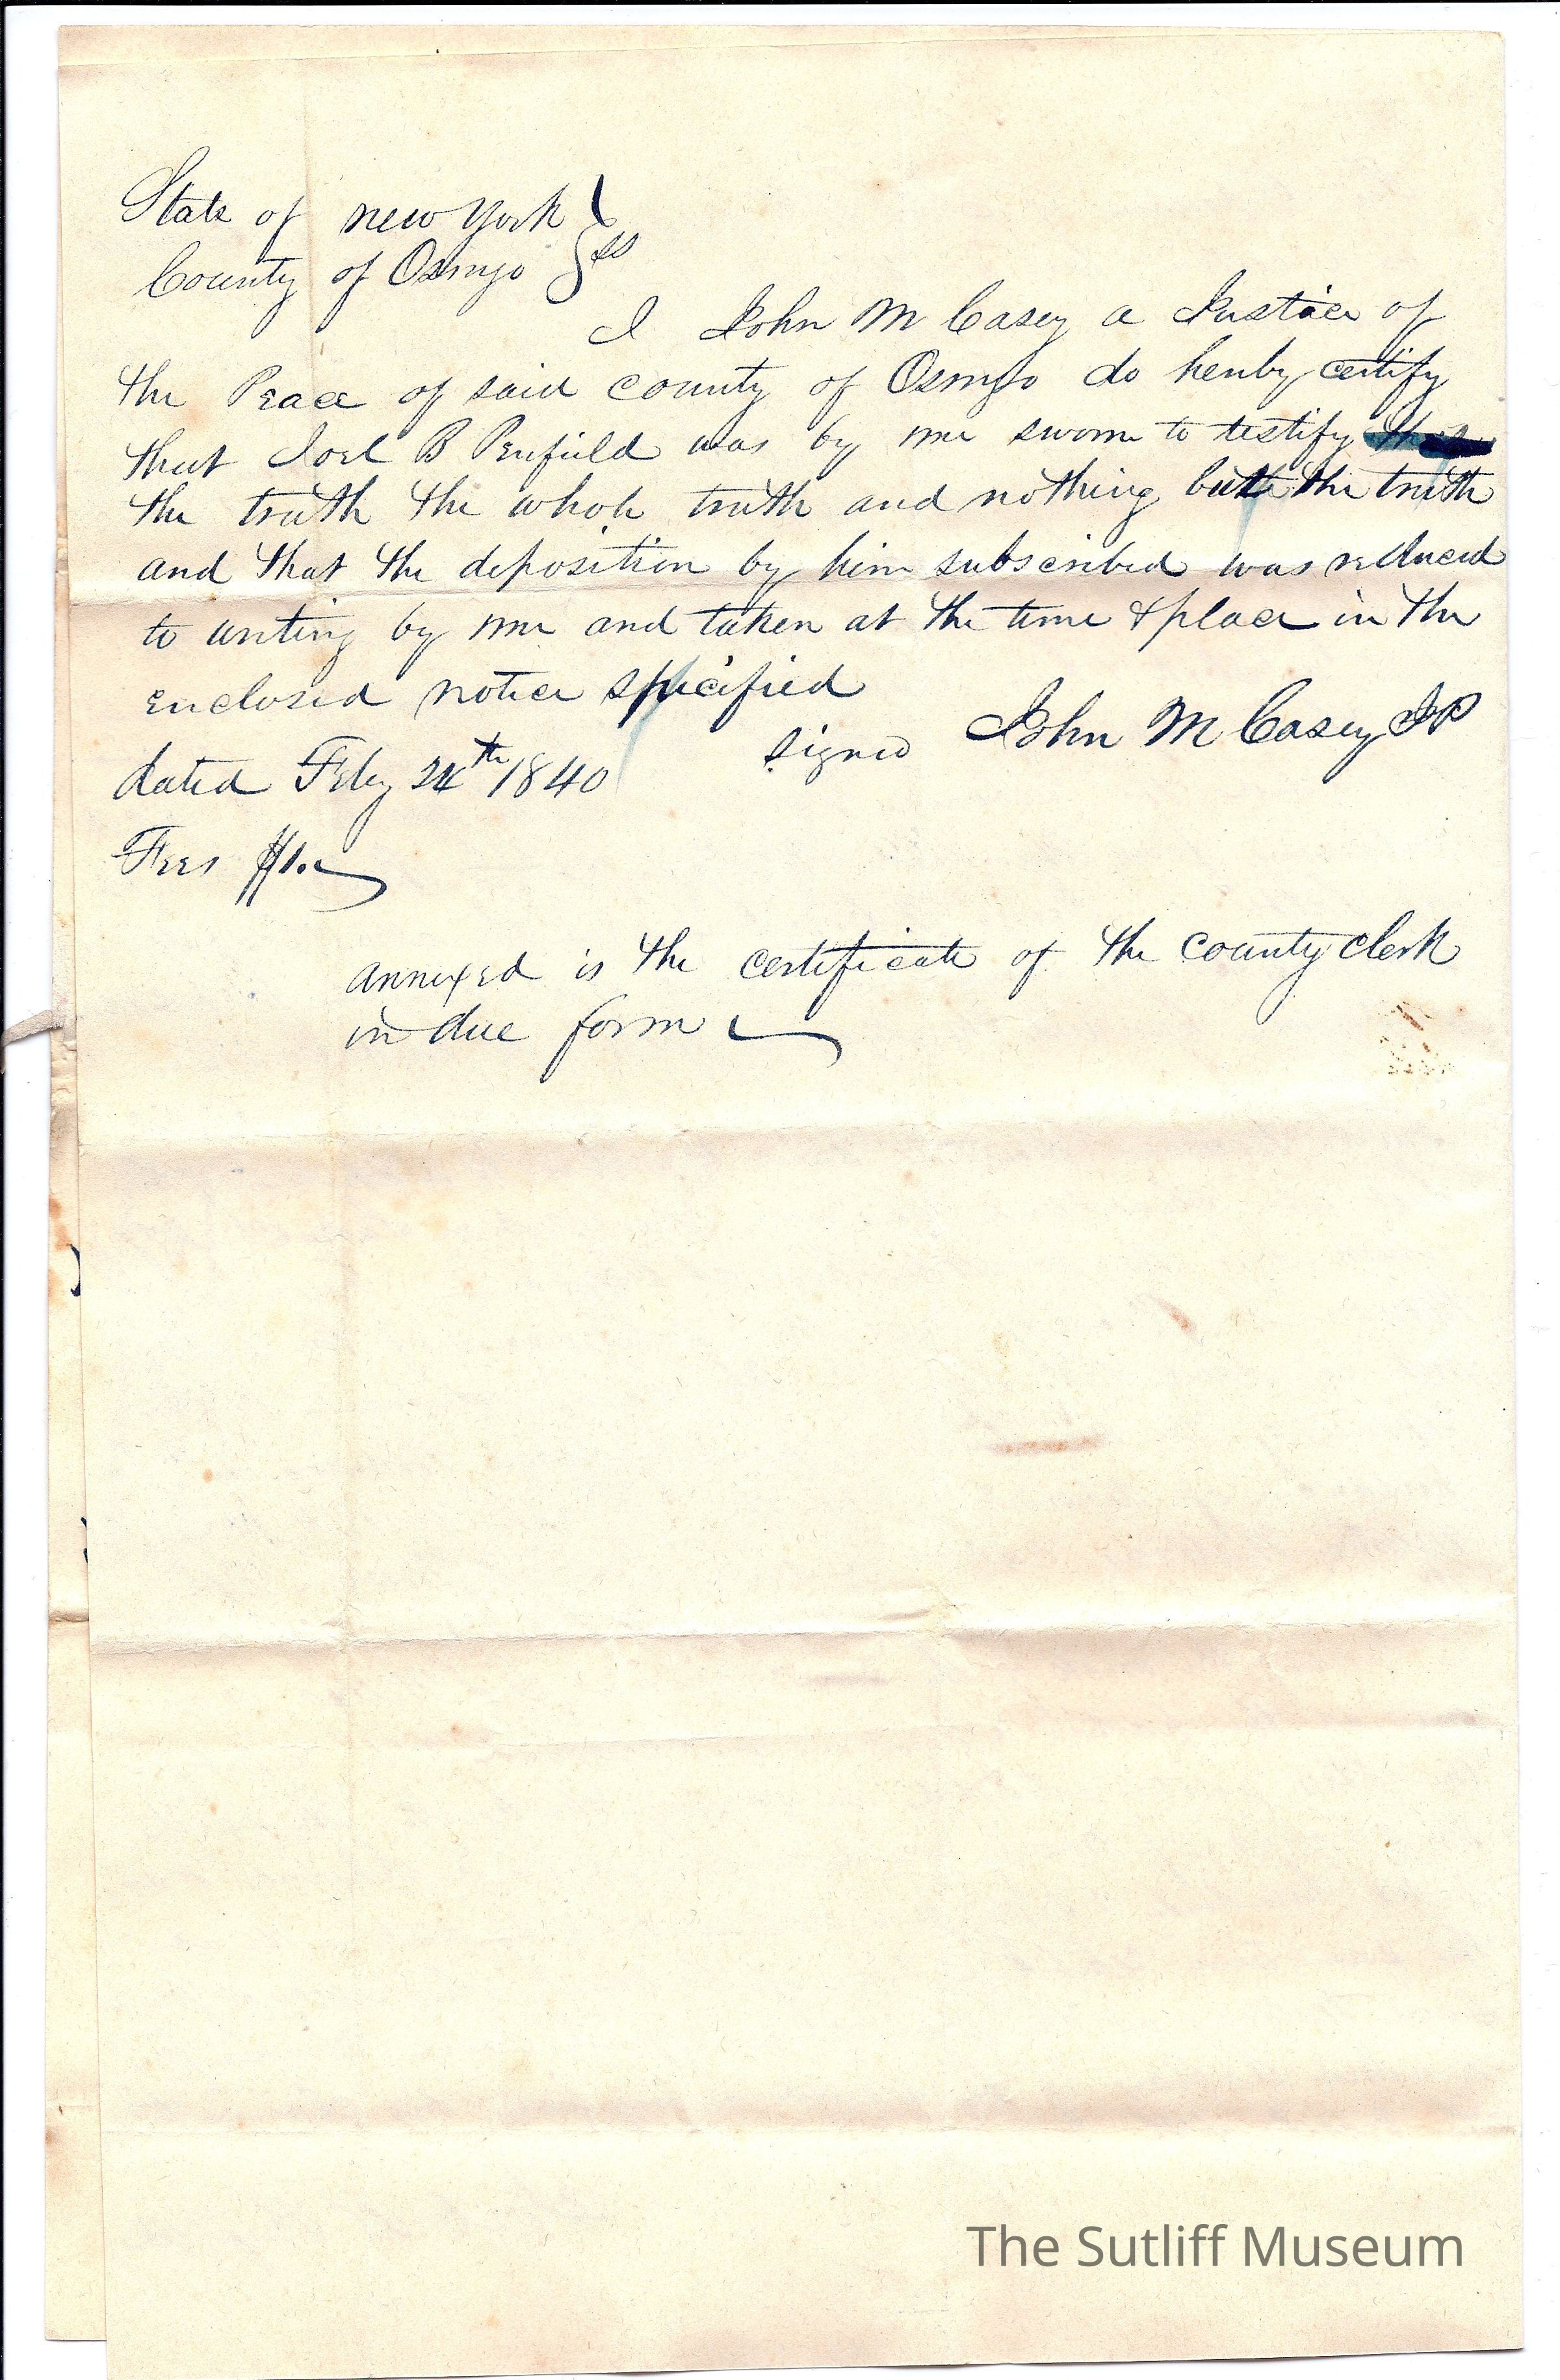 State of new york } ss
County of Oswego
I John M Casey a Justice of
the Peace of said county of Oswego do hereby certify
that Joel B Penfield was by me sworn to testify
the truth the whole truth and nothing but the truth
and that the deposition by him subscribed was reduced
to writing by me and taken at the time & place in the
enclosed notice specified
signed John M Casey JP
dated Feby 24th 1840
Fees $1.
annexed is the certificate of the county clerk
in due form
The Sutliff Museum